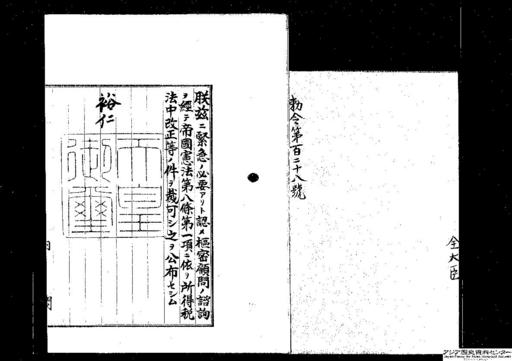 全大臣
勅令第百二十八號
朕茲ニ緊急ノ必要アリト認メ樞密顧問ノ諮詢
ヲ經テ帝國憲法第八條第一項ニ依リ所得税
法中改正等ノ件ヲ裁可シ之ヲ公布セシム
裕仁
天皇
御璽
アジア歴史資料センター